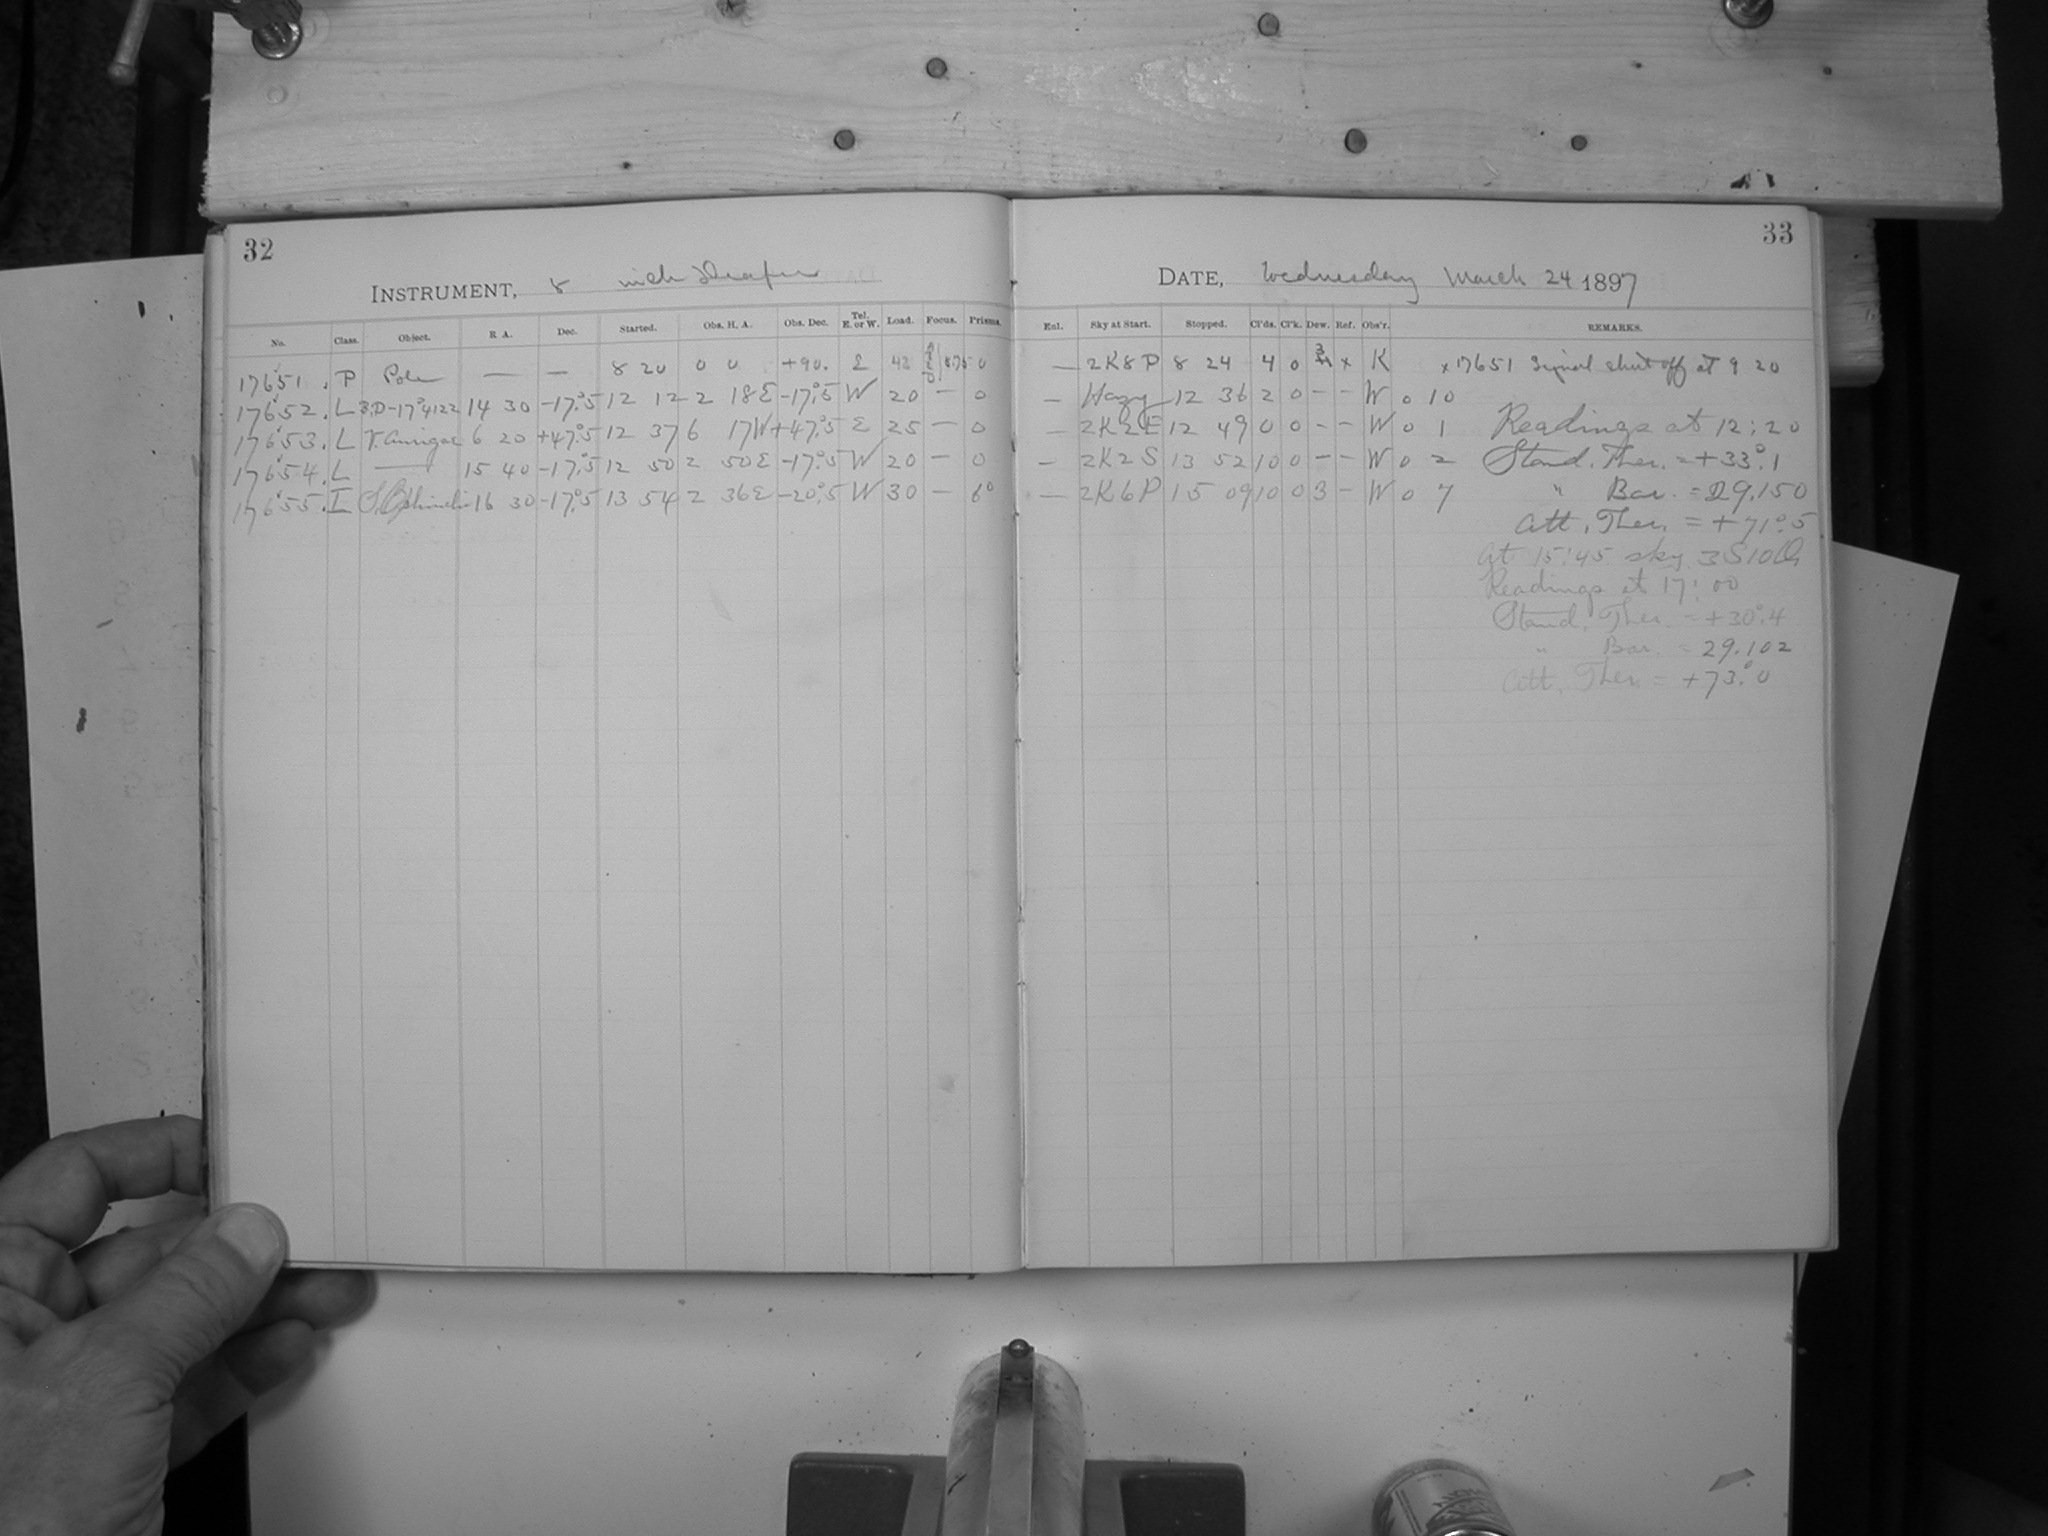 32
33
INSTRUMENT, 8 inch Draper
DATE, Wednesday March 24 1897
No. Class. Object. R A. Dec. Started. Obs. H. A. Obs. Dec. Tel. E. or W. Load. Focus. Prisms.
Enl. Sky at Start. Stopped. Cl'ds. Cl'k. Dew. Ref. Obs'r. REMARKS.
17651. P Pole — — 8 20 0 0 +90. E 42 0 — 2K8P 8 24 4 0 x K x17651 Signal shut off at 9 20
17652. L B.D-17°4122 14 30 -17°.5 12 12 2 18E -17°.5 W 20 — 0 — Hazy 12 36 2 0 - - W 0 10
17653. L Aurigae 6 20 +47°.5 12 37 6 17W +47°.5 E 25 — 0 — 2K2E 12 49 0 0 - - W 0 1
17654. L — 15 40 -17°.5 12 50 2 50E -17°.5 W 20 — 0 — 2K2S 13 52 10 0 - - W 0 2
17655. I 16 30 -17°.5 13 54 2 36E -20°.5 W 30 — 6° — 2K6P 15 09 10 0 3 - W 0 7
Readings at 12:20
Stand. Ther. = +33°.1
" Bar. = 29.150
Att. Ther. = +71°.5
At 15:45 sky
Readings at 17:00
Stand. Ther. = +30°.4
" Bar. = 29.102
Att. Ther. = +73.°0